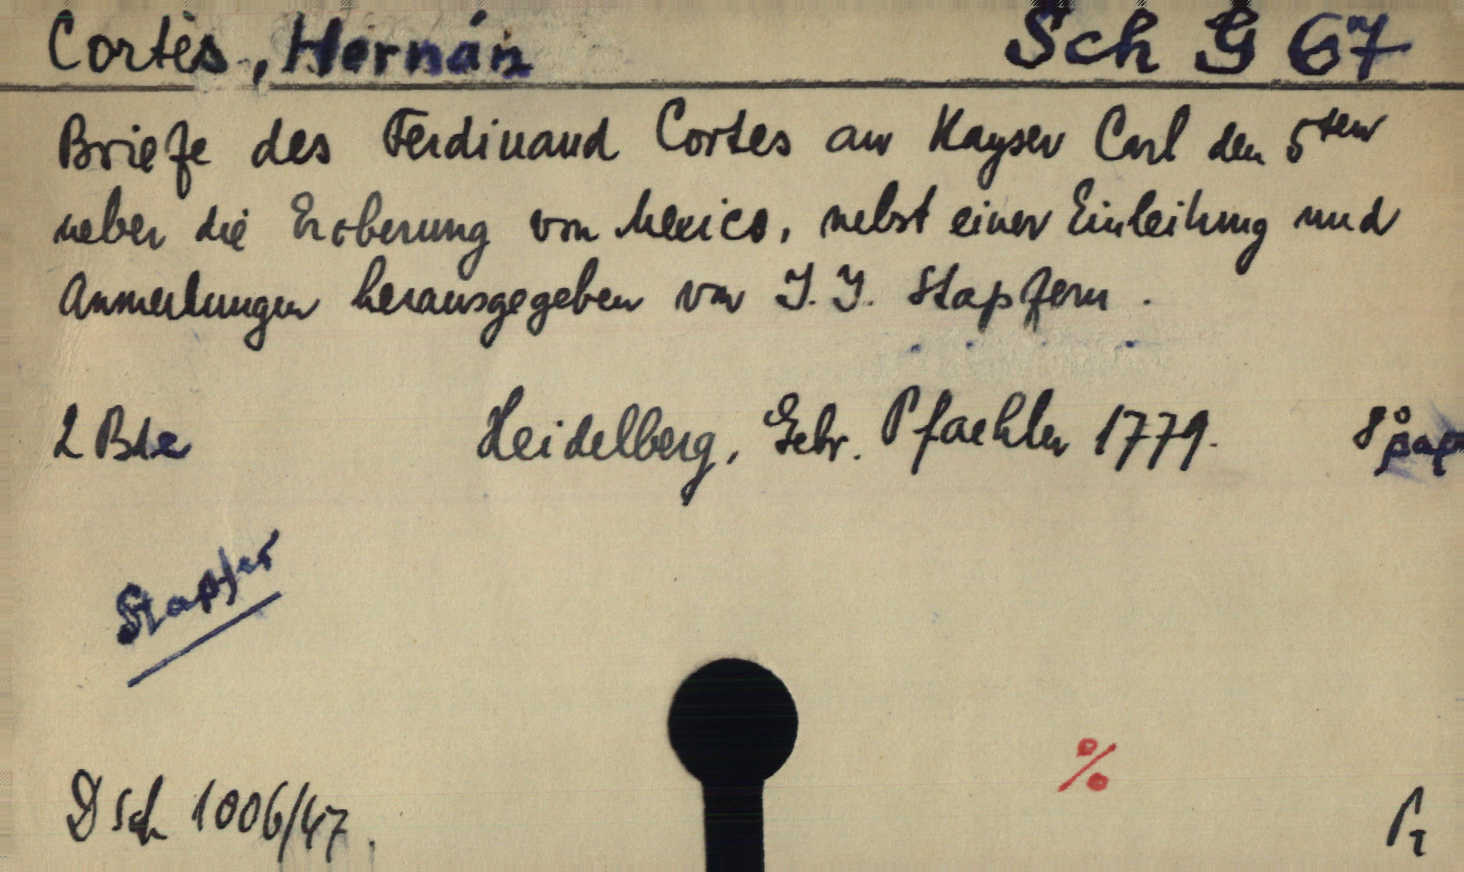 Cortès, Hernán Sch G 67
Briefe des Ferdinand Cortes an Kayser Carl den 5ten
ueber die Eroberung von Mexico, nebst einer Einleitung und
Anmerkungen herausgegeben von J. J. Stapfern.
2 Bde Heidelberg, Gebr. Pfaehler 1779. 8°
Stapfer
%
D Sch 1006/47.